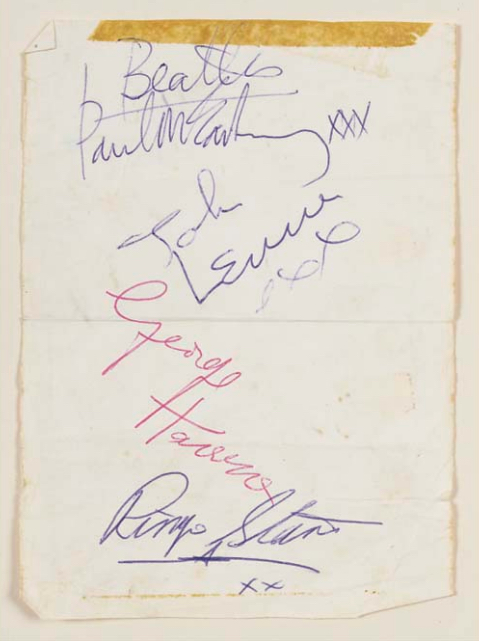 Beatles
Paul McCartney xxx
John
Lennon
xxx
George
Harrison
Ringo Starr
xx